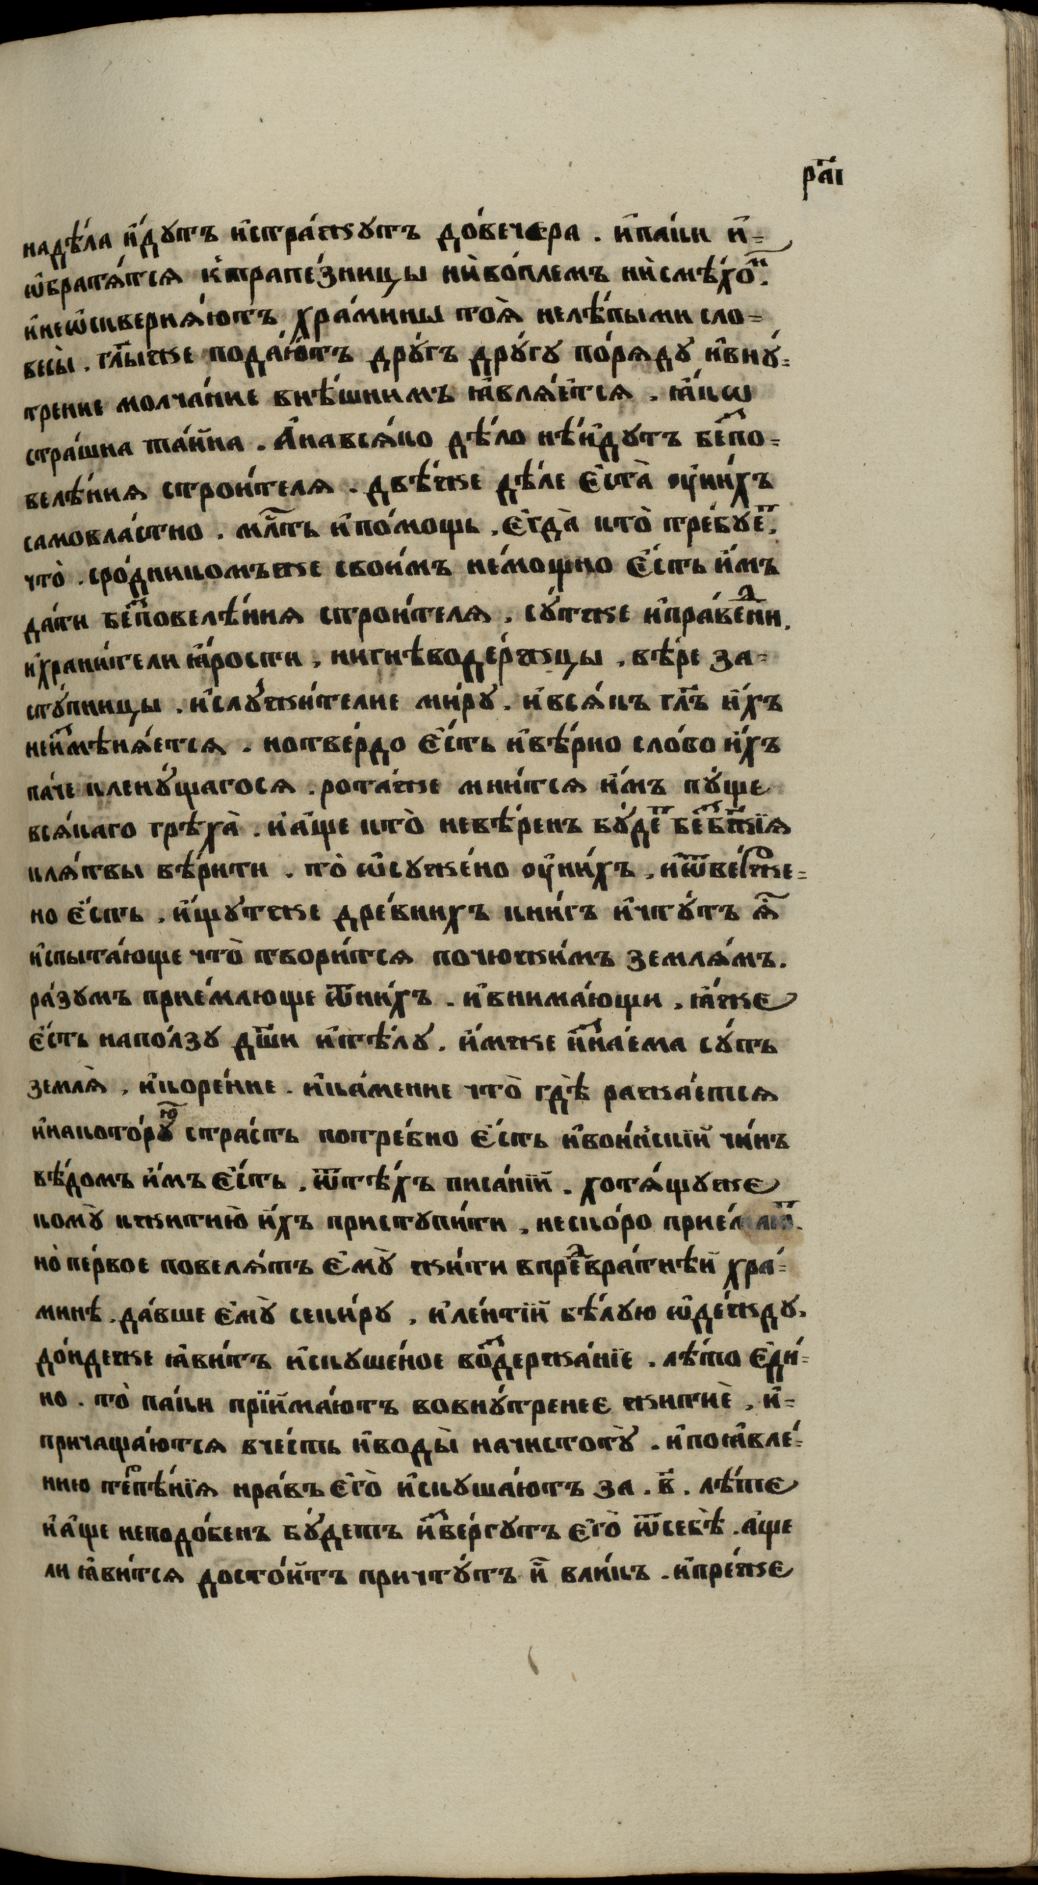 р҃аі
надѣ́ла и҆́дутъ и҆стра́жутъ до́вечера . и҆па́ки и҆=
ѡ҆братя́тся к̾трапе́зницы ни̾во́племъ ни̾смѣ́хоⷨ.
и҆неѡ҆скверня́ютъ хра́мины тоя̀ нелѣ́пыми сло=
весы̀ . гл҃ыже пода́ютъ дру́гъ дру́гу по́ряду и҆вну́=
трение молча́ние внѣ́шнимъ ꙗ҆вля́етъся . ꙗ҆́кѡ
стра́шна та́йна . А҆нався́ко дѣ́ло нѣ́и҆дутъ беⷥпо=
велѣ́ния строи́теля . двѣ́же дѣ́ле є҆ста̀ ᲂу҆ни́хъ
самовла́стно . млⷭ҇ть и҆по́мощь , є҆гда̀ кто̀ тре́буеⷮ.
что̀ . сро́дникомъже свои́мъ не́мощно є҆́сть и҆̀мъ
да́ти беⷥповелѣ́ния строи́теля . су́тже и҆пра́веⷣни ,
и҆храни́тели ꙗ҆́рости , ни̾гнѣводе́ржцы , вѣ́ре за=
сту́пницы . и҆слу́жителие ми́ру . и҆вся́къ гл҃ъ и҆́хъ
неи҆ⷥмѣня́ется . но̾тве́рдо є҆́сть и҆вѣ́рно сло́во и҆́хъ
па́че клену́щагося . рота́же мни́тся и҆́мъ пу́ще
вся́каго грѣха̀ . и҆а҆́ще кто̀ невѣ́ренъ бу́деⷮ беⷥбж҃їя
кля́твы вѣ́рити . то̀ ѡ҆суже́но ᲂу҆ни́хъ , и҆ѿве́рⷤже=
но є҆́сть , и҆́щутже дре́вниⷯхъ кни́гъ и҆чту́тъ ѧ҆̀
и҆спыта́юще что̀ твори́тся почю́жимъ земля́мъ .
ра́зумъ прие́млюще ѿни́хъ . и҆внима́ющи , ꙗ҆́же
є҆́сть напо́лзу дш҃и и҆тѣ́лу . и҆́мже и҆ⷥна́ема су́ть
земля̀ , и҆коре́ние . и҆ка́мение что̀ гдѣ̀ ража́ется
и҆накото́руⷻ стра́сть потре́бно є҆́сть и҆вои́нскїй чи́нъ
вѣ́домъ и҆́мъ є҆́сть , ѿтѣ́хъ писа́нїй . хотя́щуже
кому̀ кжитию̀ и҆́хъ приступи́ти , неско́ро прие́млюⷮ.
но̾пе́рвое повеля́тъ є҆му̀ жи́ти впреⷣвра́тнѣй хра́=
минѣ . да́вше є҆му̀ секи́ру , и҆ле́нтїй бѣ́лую ѡ҆де́жду ,
до́ндеже ꙗ҆ви́тъ и҆скуше́ное воⷥдержа́нїе . лѣ́то є҆ди́=
но . то̀ па́ки прїйма́ютъ вовну́тренее житиѐ , и҆=
причаща́ются вче́сть и҆во́ды начистоту̀ . и҆поꙗ҆вле́=
нию теⷬпѣ́нїя нра́въ є҆го̀ и҆скуша́ютъ за . в҃ . лѣ́тє
и҆а҆́ще неподо́бенъ бу́детъ и҆ⷥве́ргутъ є҆го̀ ѿсебѐ . а҆́ще
ли ꙗ҆ви́тся досто́йтъ причту́тъ и҆̀ вли́къ . и҆пре́же